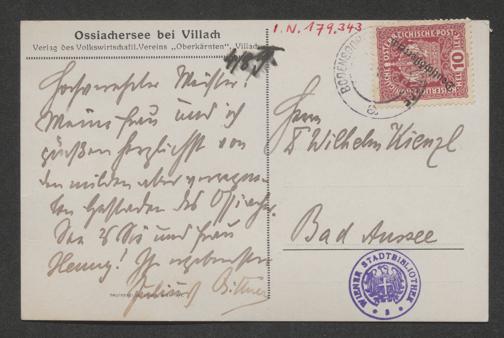 Ossiachersee bei Villach
Verlag des Volkswirtschaftl. Vereins „Oberkärnten“, Villach
I. N. 179.343
Hochverehrter Meister!
Meine Frau und ich
grüßen herzlichst von
den milden aber verregne-
ten Gestaden des Ossiacher
Sees Sie und Frau
Henny! Ihr ergebenster
Julius Bittner
Herrn
Dr Wilhelm Kienzl
Bad Aussee
KAISERLICHE KÖNIGLICHE ÖSTERREICHISCHE POST
Deutschösterreich
10
BODENSDORF
WIENER STADTBIBLIOTHEK